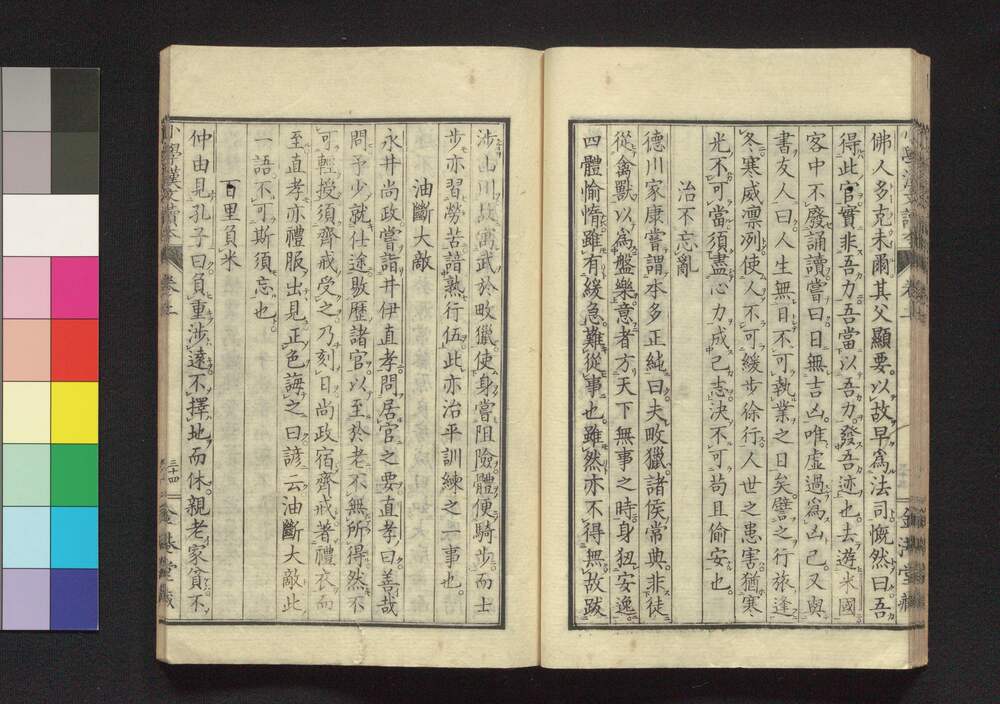 佛人多克未爾其父顯要以故早爲法司慨然曰吾
得此官實非吾力吾當以吾力發吾迹也去遊米國
客中不廢誦讀嘗曰日無吉凶唯虛過爲凶已又與
書友人曰人生無日不可執業之日矣譬之行旅逢
冬寒威凛冽使人不可緩步徐行人世之患害猶寒
光不可當須盡心力成己志決不可苟且偷安也
治不忘亂
德川家康嘗謂本多正純曰夫畋獵諸侯常典非徒
從禽獸以爲盤樂意者方天下無事之時身狃安逸
四體愉惰雖有緩急難從事也雖然亦不得無故跋
涉山川故寓武於畋獵使身當阻險體便騎步而士
步亦習勞苦諳熟行伍此亦治平訓練之一事也
油斷大敵
永井尚政嘗詣井伊直孝問居官之要直孝曰善哉
問予少就仕途敭歷諸官以至於老不無所得然不
可輕授須齊戒受之乃刻日尚政宿齊戒著禮衣而
至直孝亦禮服出見正色誨之曰諺云油斷大敵此
一語不可斯須忘也
百里負米
仲由見孔子曰負重涉遠不擇地而休親老家貧不
小學漢文讀本
卷之
三十四
金港堂藏